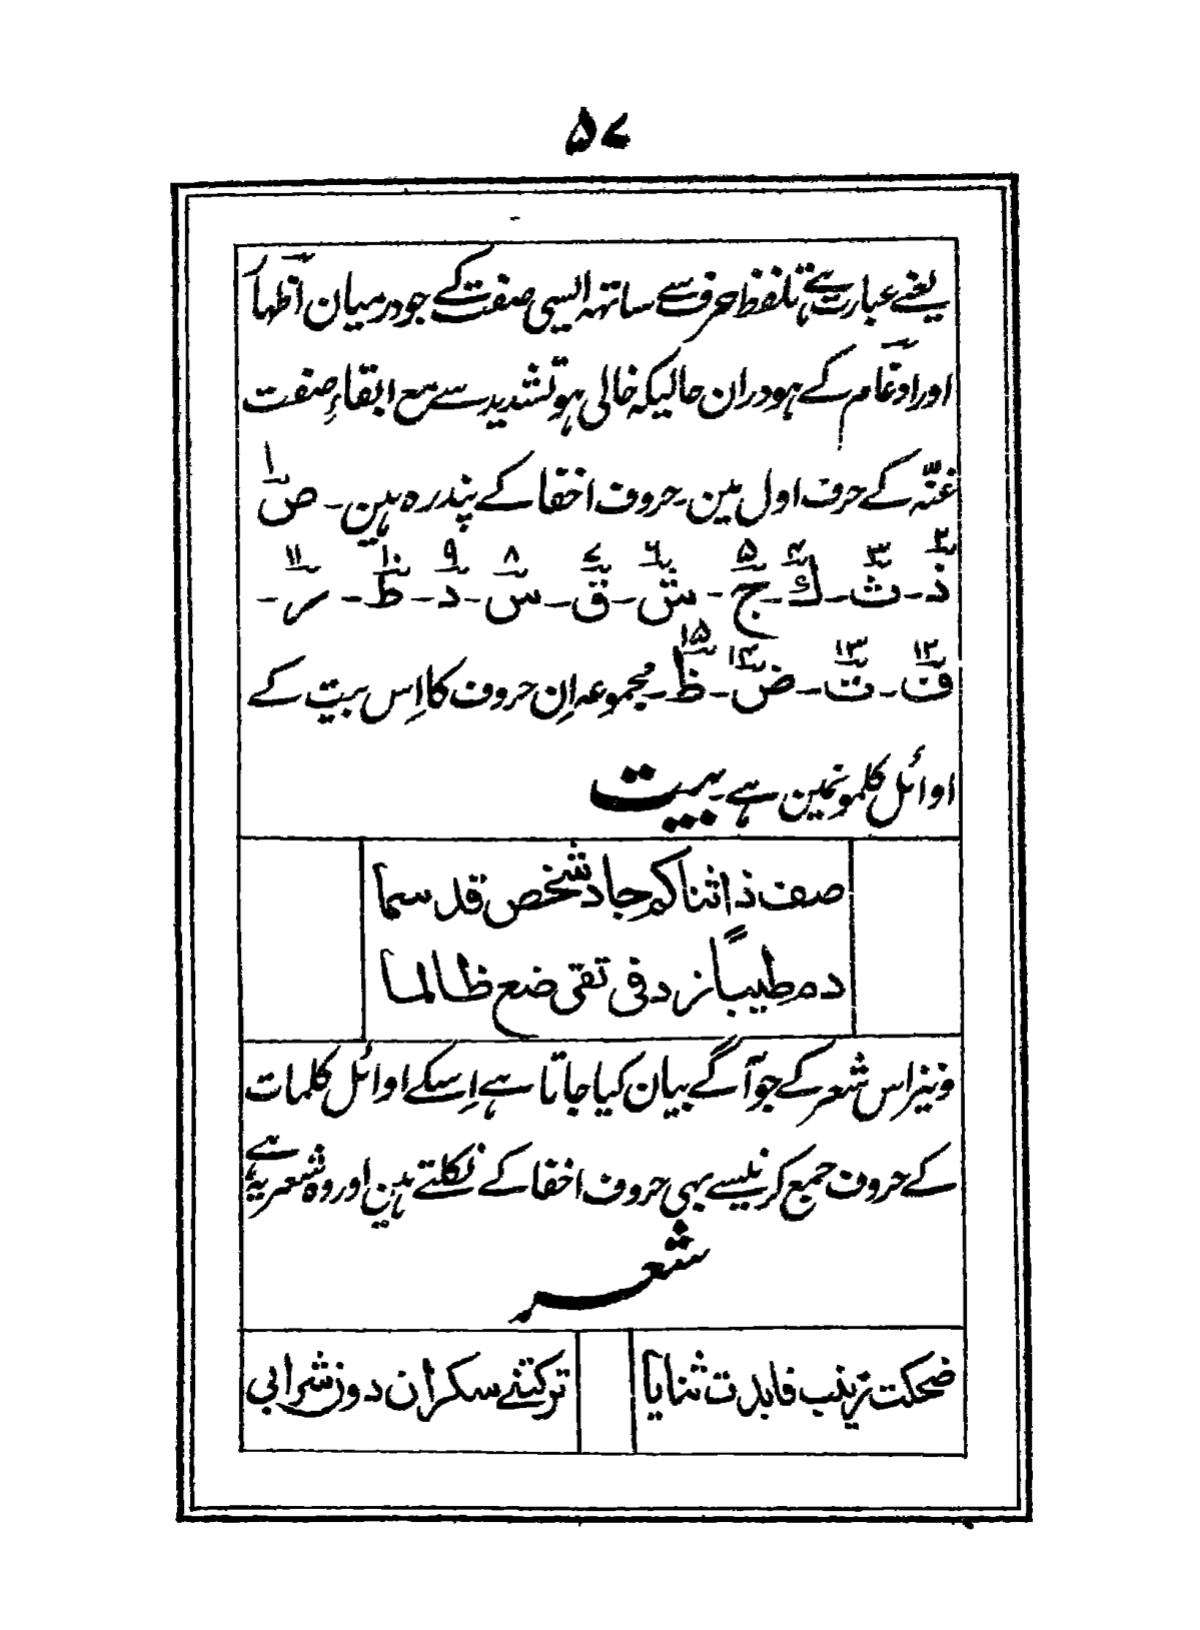 ۵۷
یعنے عبارت ہے تلفظ حرف سے ساتھہ ایسی صفت کے جو درمیان اظہار
اور ادغام کے ہو دران حالیکہ خالی ہو تشدید سے مع ابقاءِ صفت
غنّہ کے حرف اول مین ۔ حروف اخفا کے پندرہ ہین ۔ ص۱
ذ۲ ۔ ث۳ ۔ ك۴ ۔ ج۵ ۔ ش۶ ۔ ق۷ ۔ س۸ ۔ د۹ ۔ ط۱۰ ۔ ز۱۱ ۔
ف۱۲ ۔ ت۱۳ ۔ ض۱۴ ۔ ظ۱۵ ۔ مجموعہ اِن حروف کا اِس بیت کے
اوائل کلمونمین ہے بیت
صف ذا ثنا كم جاد شخص قد سما
دم طيبًا زد فى تقى ضع ظالما
و نیز اس شعر کے جو آگے بیان کیا جاتا ہے اِسکے اوائل کلمات
کے حروف جمع کرنیسے بہی حروف اخفا کے نکلتے ہین اور وہ شعر یہ ہے
شعر
ضحكت زينب فابدت ثنايا
تركتنے سكران دون شرابى